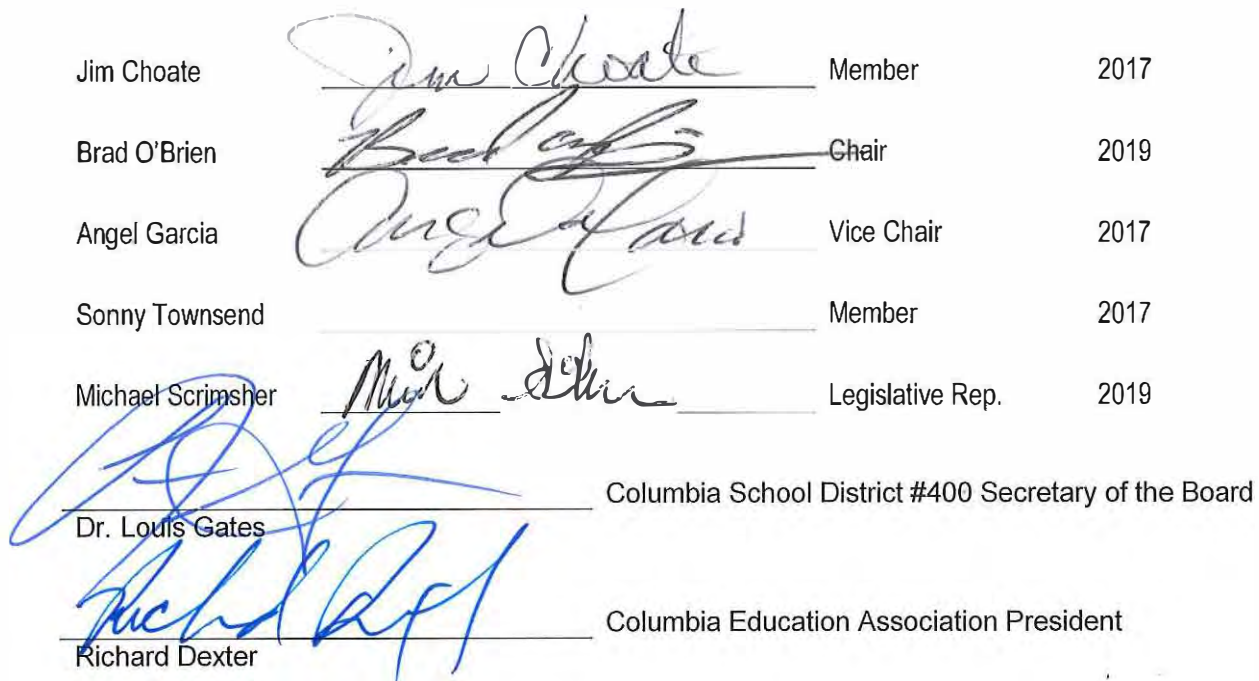 Jim Choate Jim Choate Member 2017
Brad O'Brien Brad Chair 2019
Angel Garcia Angel Garcia Vice Chair 2017
Sonny Townsend Member 2017
Michael Scrimsher Legislative Rep. 2019
Columbia School District #400 Secretary of the Board
Dr. Louis Gates
Richard Columbia Education Association President
Richard Dexter